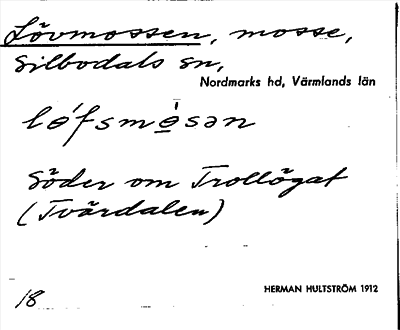 Lövmossen, mosse,
Silbodals sn,
Nordmarks hd, Värmlands län
lǿfsmɵ̀sən
Söder om Trollögat
(Tvärdalen)
18
HERMAN HULTSTRÖM 1912